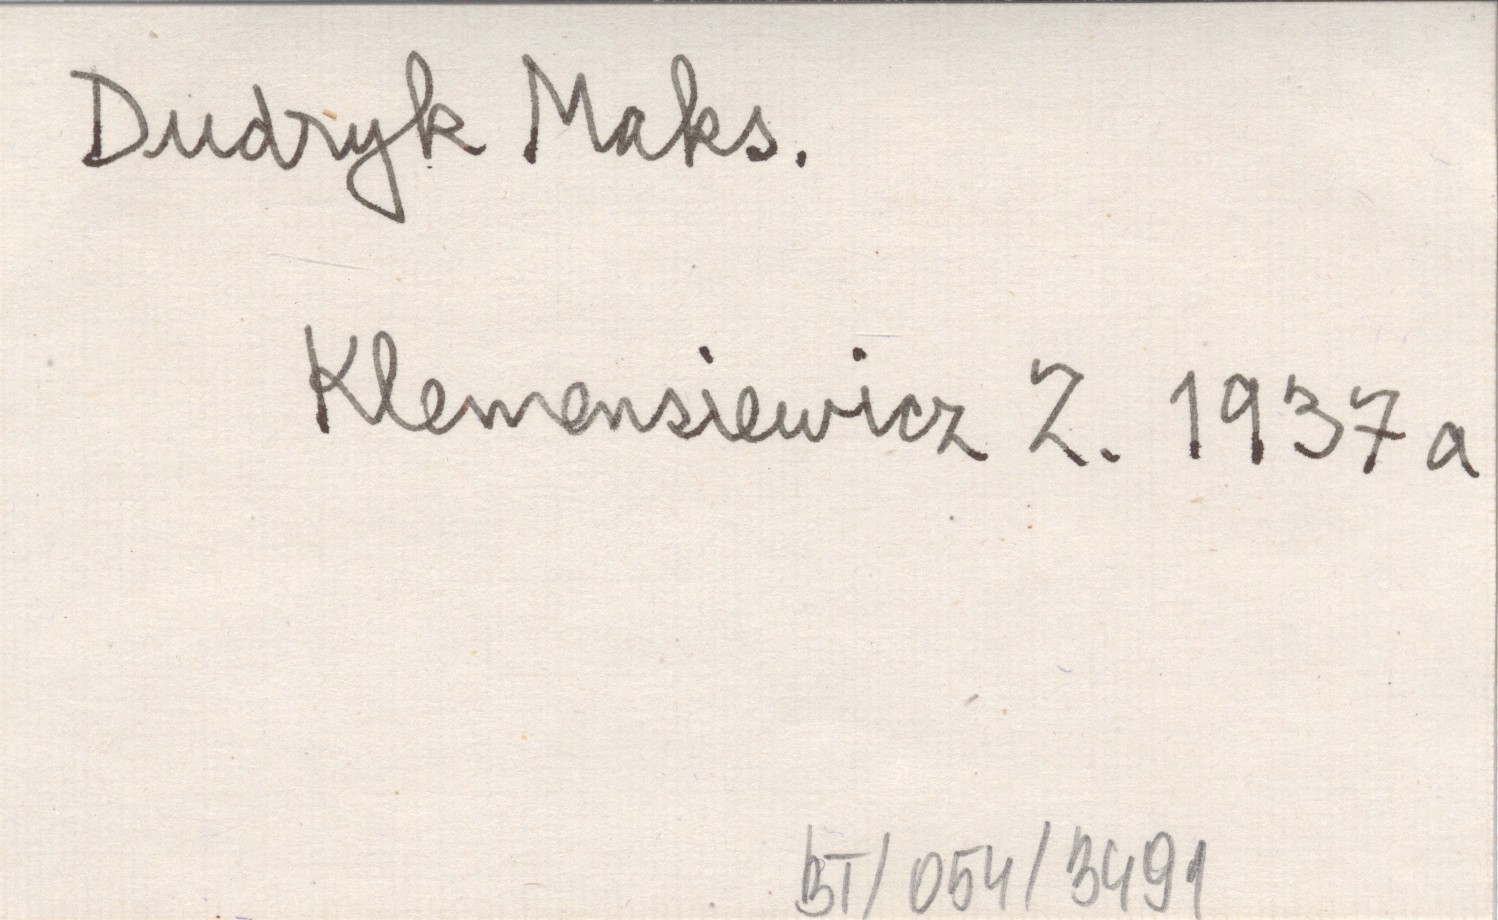 Dudryk Maks.
Klemensiewicz Z. 1937a
BT/054/3491